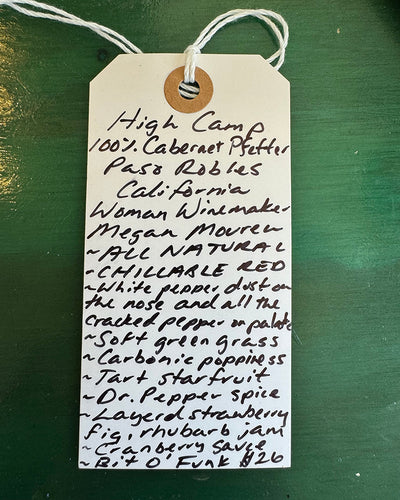 High Camp
100% Cabernet Pfeffer
Paso Robles
California
Woman Winemaker
Megan
~ALL NATURAL
~CHILLABLE RED
~White pepper dust on
the nose and all the
cracked pepper on palate
~Soft green grass
~Carbonic poppiness
~Tart starfruit
~Dr. Pepper spice
~Layerd strawberry
fig, rhubarb jam
~Cranberry sauce
~Bit O' Funk $26